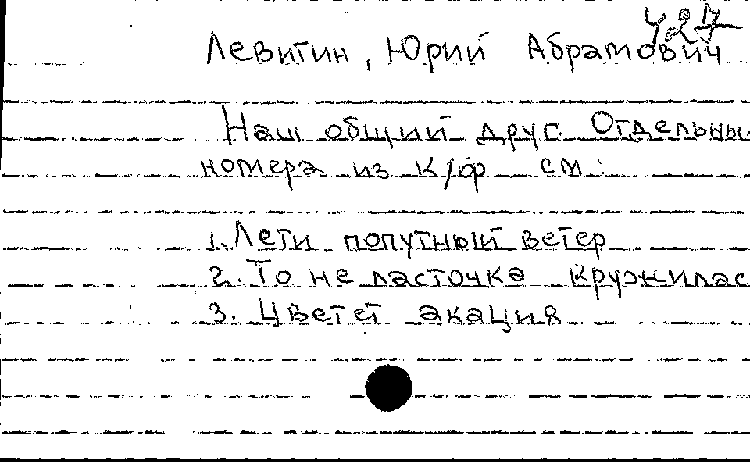 427
Левитин, Юрий Абрамович
Наш общий друг. Отдельны
номера из к/ф см:
1. Лети попутный ветер
2. То не ласточка кружилас
3. Цветет акация